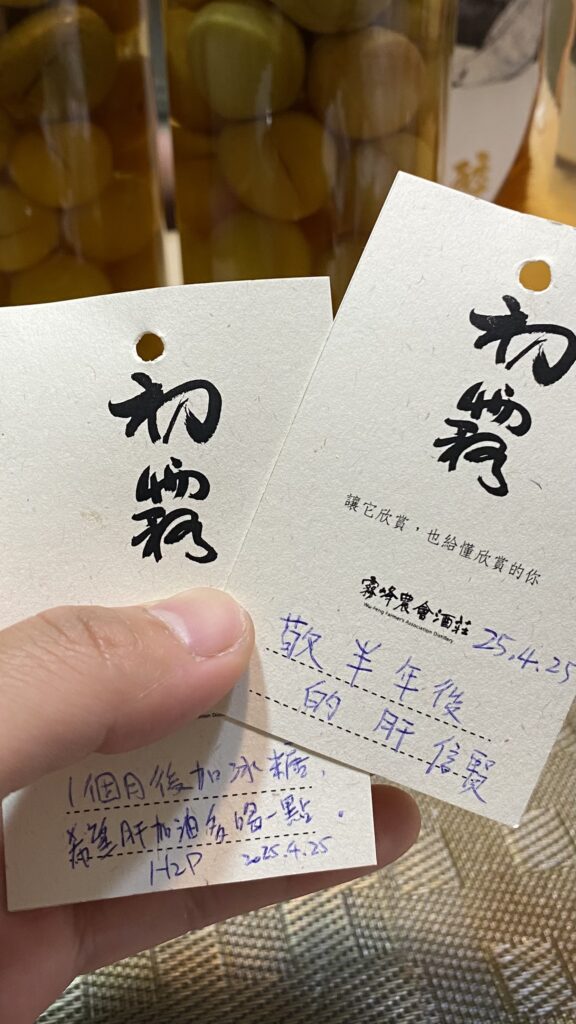 初霧
1個月後加冰糖,
希望肝加油多喝一點.
H2P 2025.4.25
初霧
讓它欣賞,也給懂欣賞的你
霧峰農會酒莊
Wu-Feng Farmer's Association Distillery
25.4.25
敬半年後
的肝